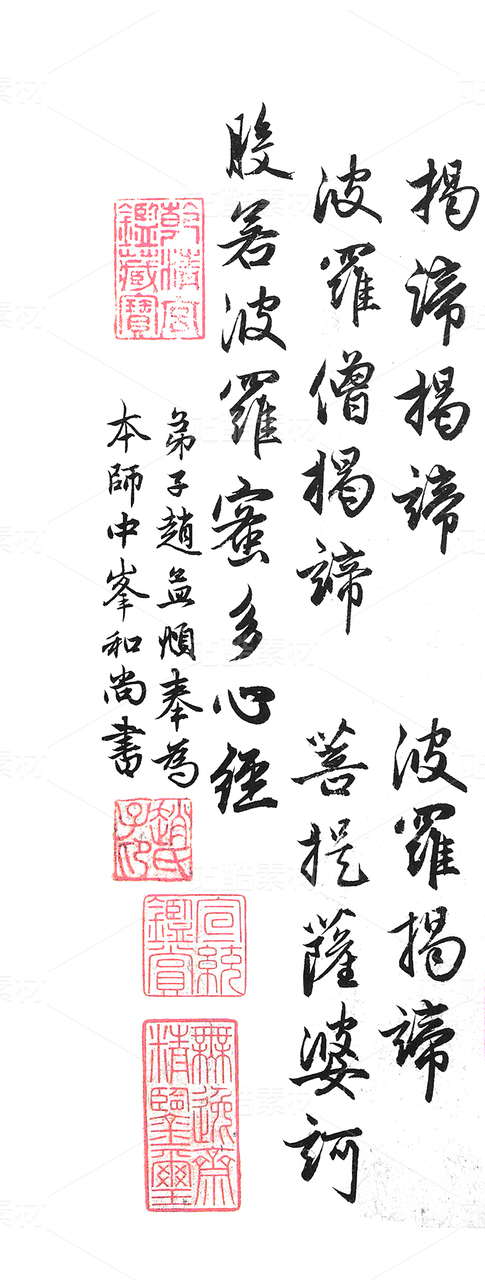 揭諦揭諦 波羅揭諦
波羅僧揭諦 菩提薩婆訶
般若波羅蜜多心經
弟子趙孟頫奉為
本師中峯和尚書
乾清宮鑑藏寶
趙氏子印
宣統鑑賞
無逸齋精鑒璽